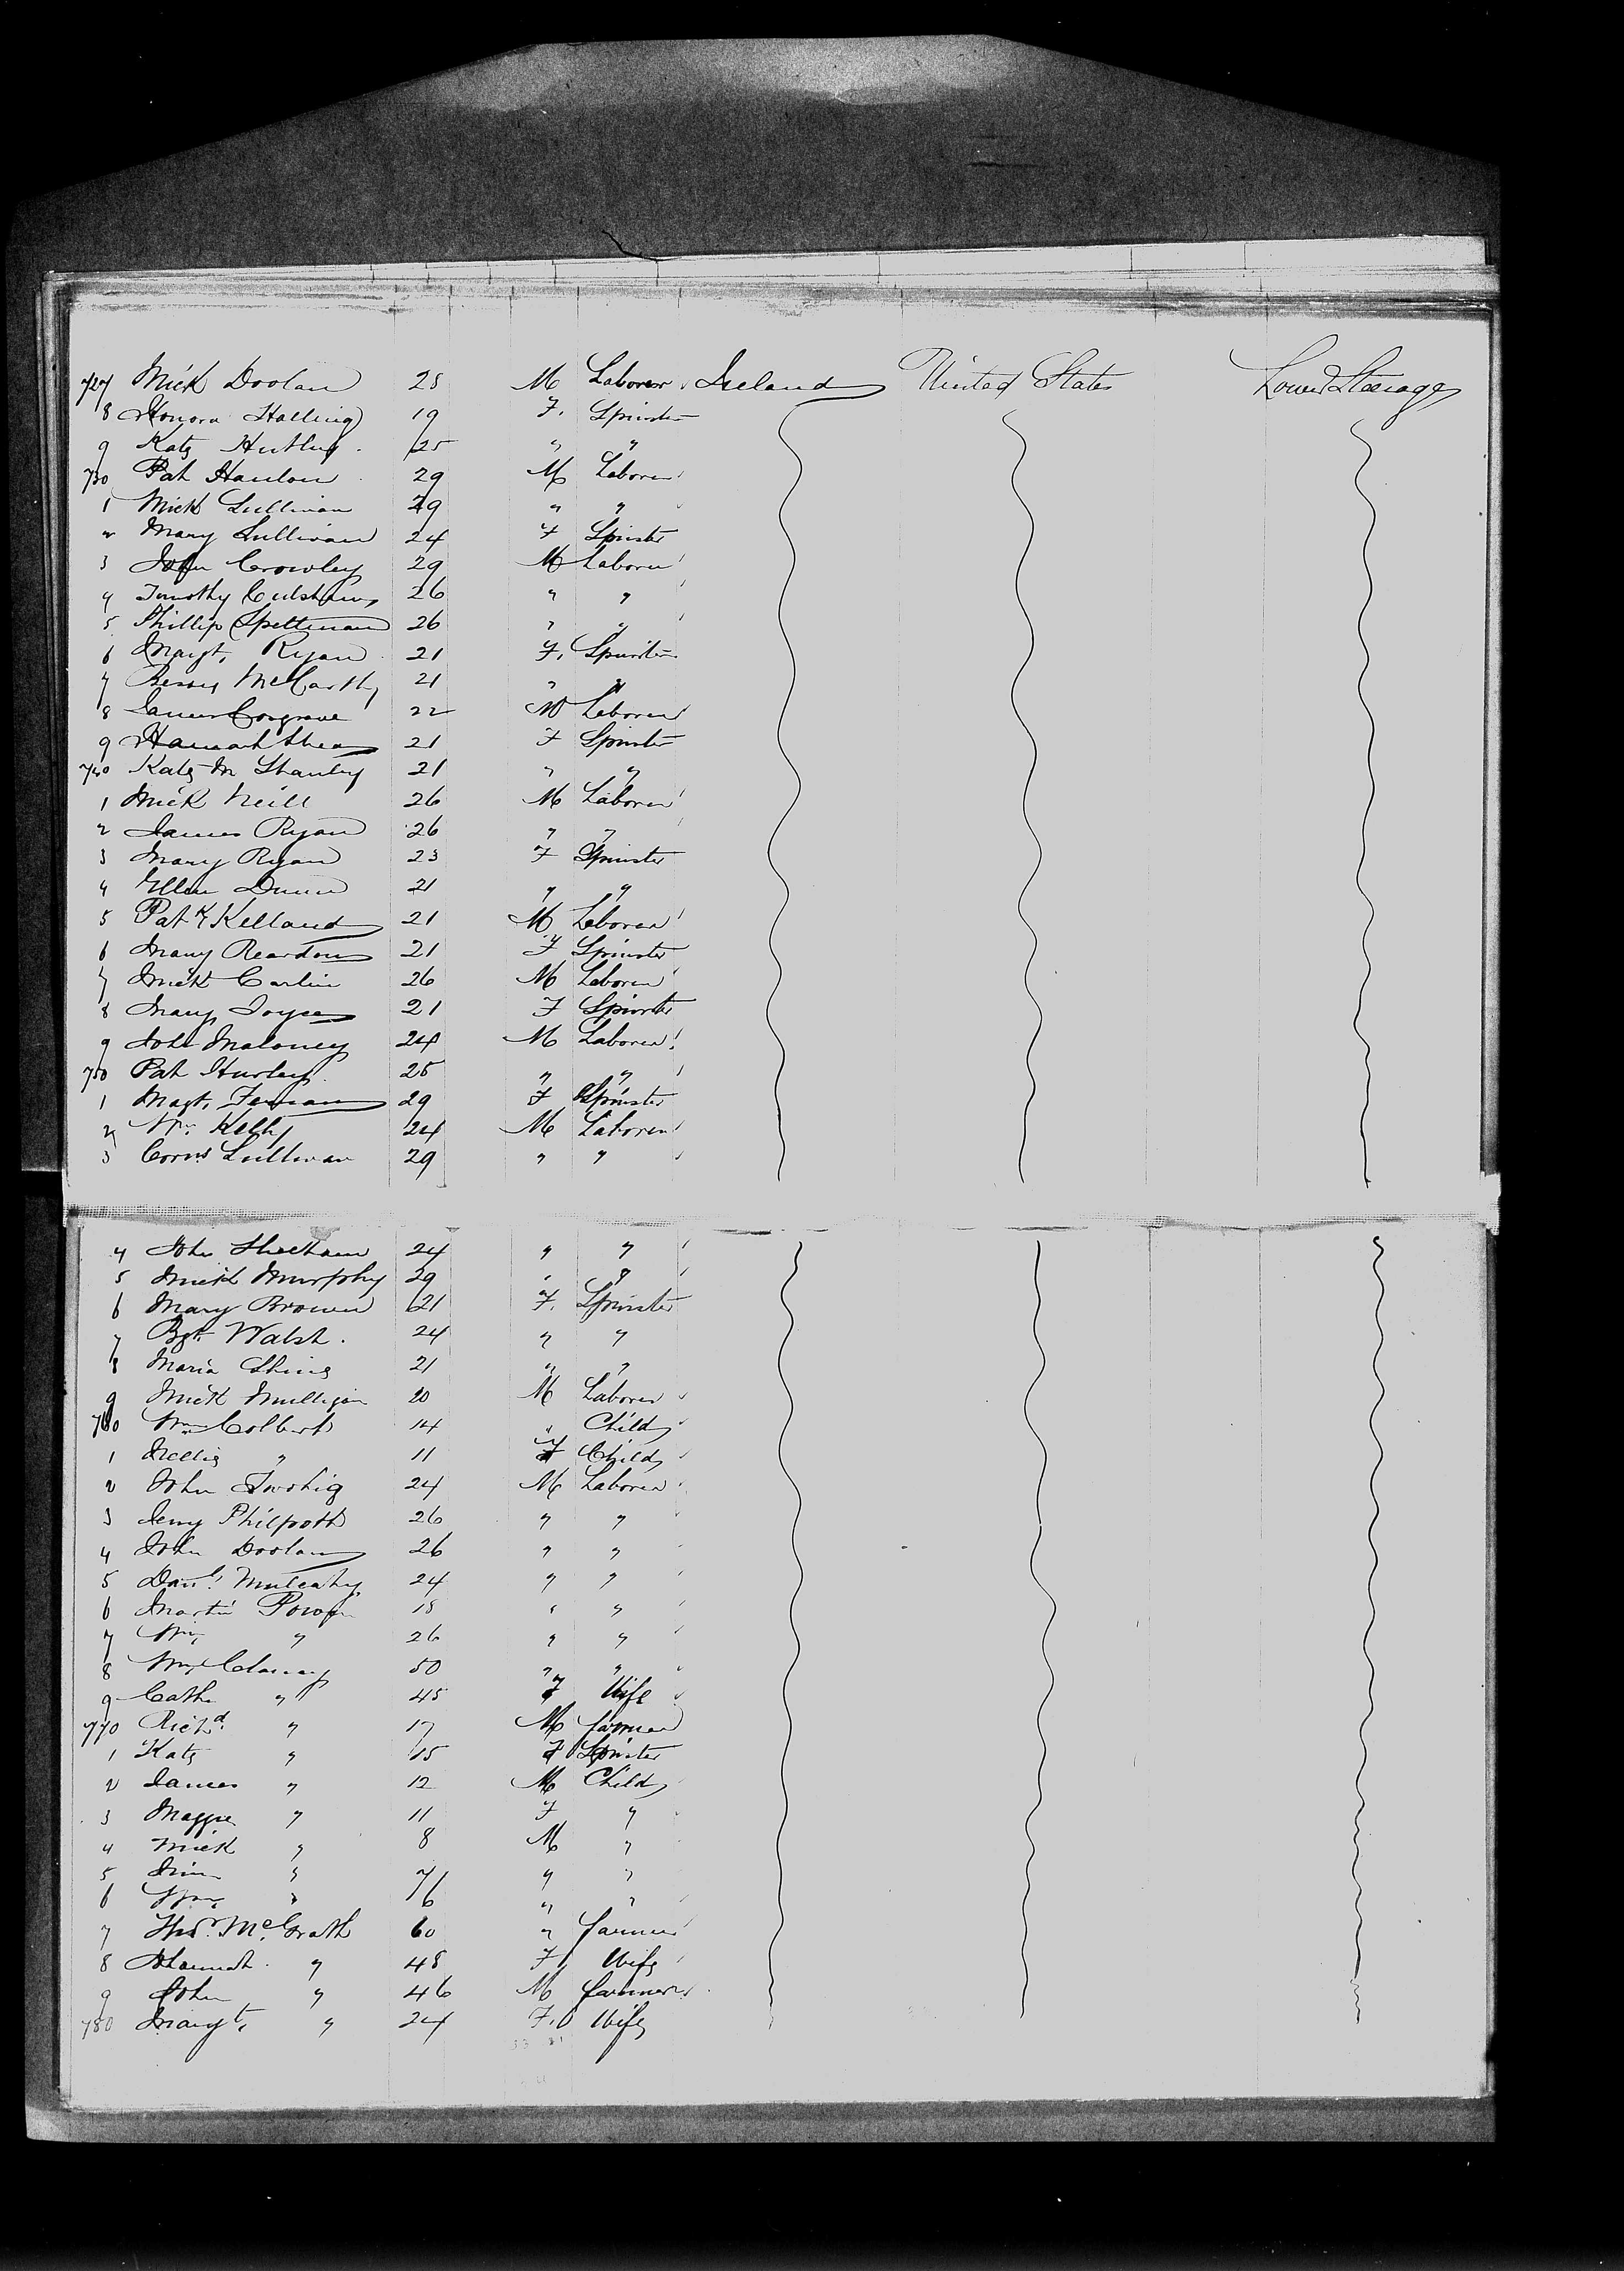 727 Mick Doolan 25 M Laborer Ireland United States Lower Steerage
8 Honora Halling 19 F. Spinster
9 Kate 25 " "
730 Pat Hanlon 29 M Laborer
1 Mick Sullivan 29 " "
2 Mary Sullivan 24 F Spinster
3 John Crowley 29 M Laborer
4 Timothy 26 " "
5 Phillip Spellman 26 " "
6 Margt. Ryan 21 F. Spinster
7 Bessy McCarthy 21 " "
8 James Cosgrave 22 M Laborer
9 Hannah Shea 21 F Spinster
740 Kate M Stanley 21 " "
1 Mick Neill 26 M Laborer
2 James Ryan 26 " "
3 Mary Ryan 23 F Spinster
4 Ellen Dunn 21 " "
5 Patk Kelland 21 M Laborer
6 Mary Reardon 21 F Spinster
7 Mick Carlin 26 M Laborer
8 Mary Joyce 21 F Spinster
9 John Maloney 24 M Laborer
750 Pat Hurley 25 " "
1 Magt. 29 F Spinster
2 Wm. Kelly 24 M Laborer
3 Corns Sullivan 29 " "
4 John Sheehan 24 " "
5 Mick Murphy 29 " "
6 Mary Brown 21 F. Spinster
7 Bgt. Walsh. 24 " "
8 Maria Shine 21 " "
9 Mick Mulligan 20 M Laborer
760 Wm Colbert 14 " Child
1 Nellie " 11 F Child
2 John Twohig 24 M Laborer
3 Jerry Philpott 26 " "
4 John Doolan 26 " "
5 Danl. Mulcahy 24 " "
6 Martin Power 18 " "
7 Wm. " 26 " "
8 Wm. Clancy 50 " "
9 Cath. " 45 F Wife
770 Richd. " 17 M farmer
1 Kate " 15 F Spinster
2 James " 12 M Child
3 Maggie " 11 F "
4 Mick " 8 M "
5 Jim " 7 " "
6 Wm. " 6 " "
7 Thos. McGrath 60 " farmer
8 Hannah " 48 F Wife
9 John " 46 M farmer
780 Margt. " 24 F. Wife